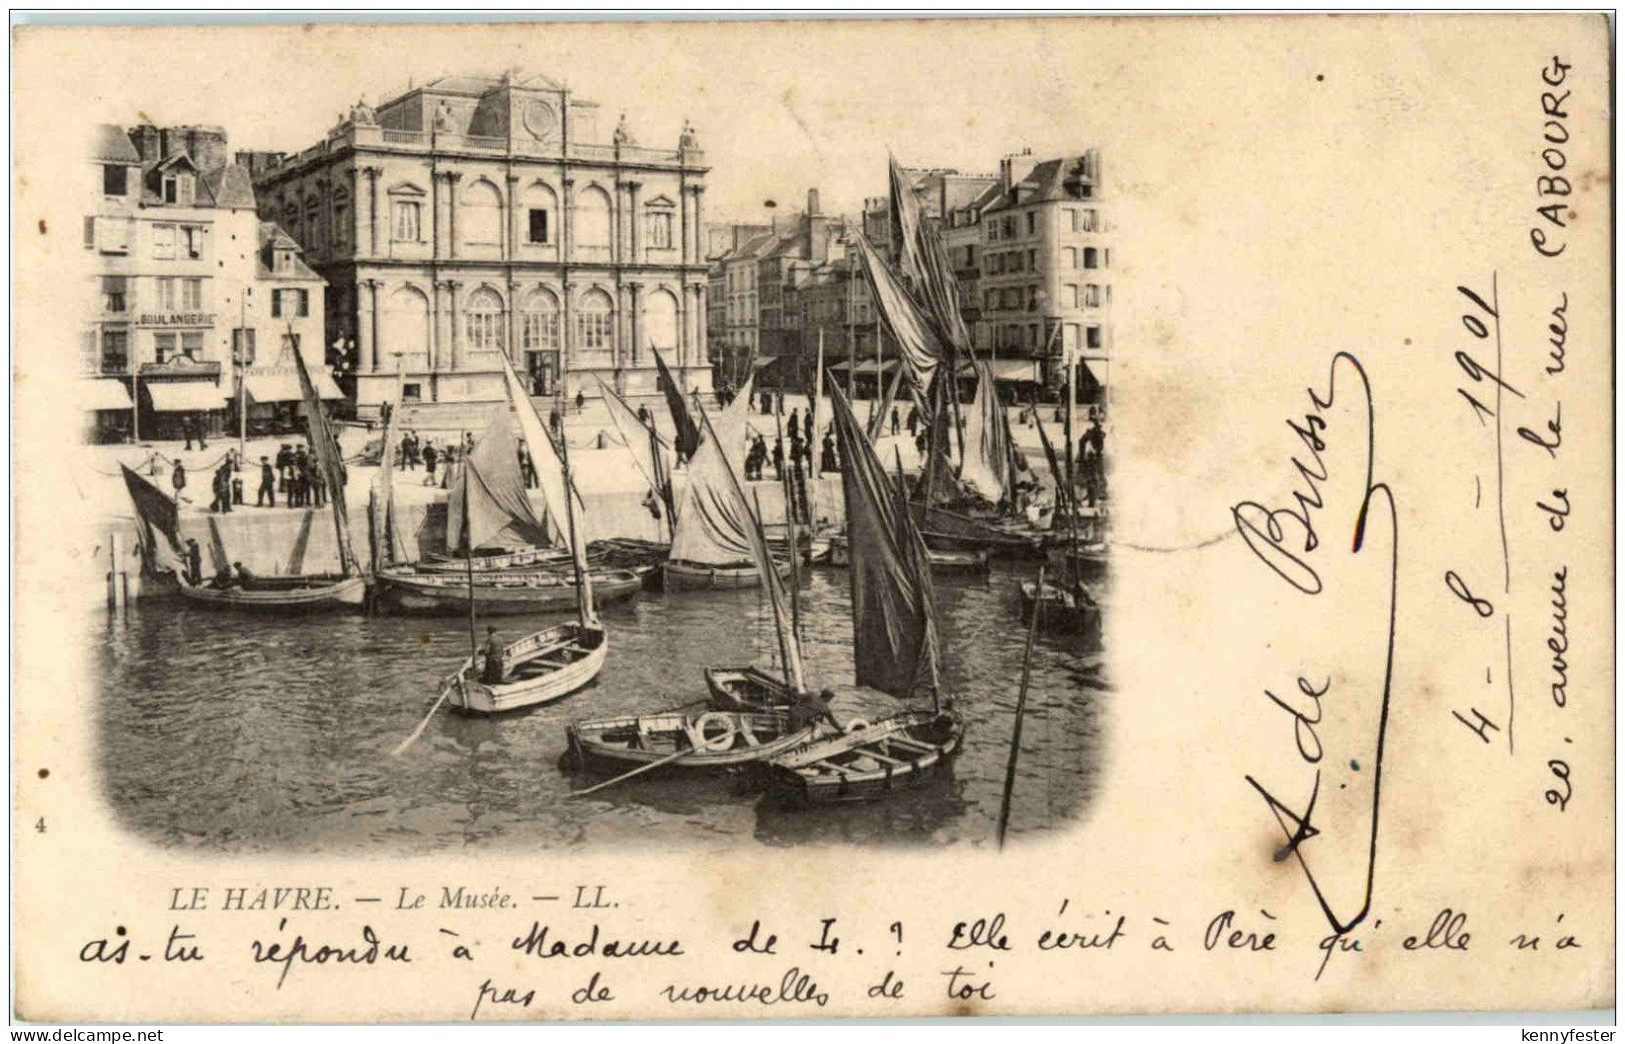 BOULANGERIE
4
LE HAVRE. — Le Musée. — LL.
as-tu répondu à Madame de L. ? Elle écrit à Père qu'elle n'a
pas de nouvelles de toi
A de Bussi
4 - 8 - 1901
20, avenue de la mer CABOURG
www.delcampe.net
kennyfester